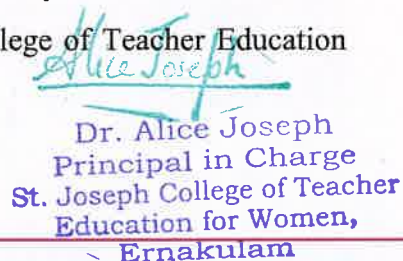 llege of Teacher Education
Alice Joseph
Dr. Alice Joseph
Principal in Charge
St. Joseph College of Teacher
Education for Women,
Ernakulam